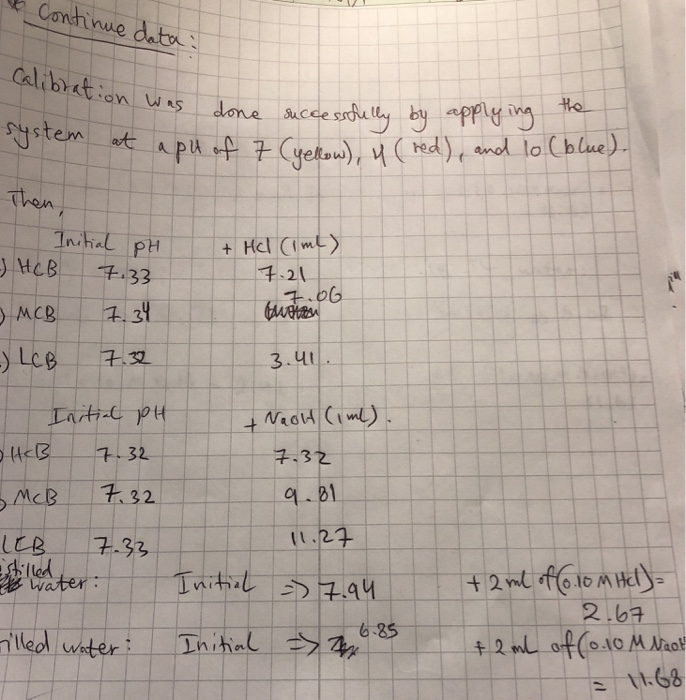 * Continue data:
Calibration was done successfully by applying the
system at a pH of 7 (yellow), 4 (red), and 10 (blue).
Then,
Initial pH + HCl (1mL)
) HCB 7.33 7.21
) MCB 7.34 7.06
) LCB 7.32 3.41.
Initial pH + NaOH (1mL).
) HCB 7.32 7.32
MCB 7.32 9.81
LCB 7.33 11.27
istilled
water: Initial => 7.94 + 2 ml of (0.10 M HCl) =
2.67
illed water: Initial => 6.85 + 2 mL of (0.10 M NaOH
= 11.68